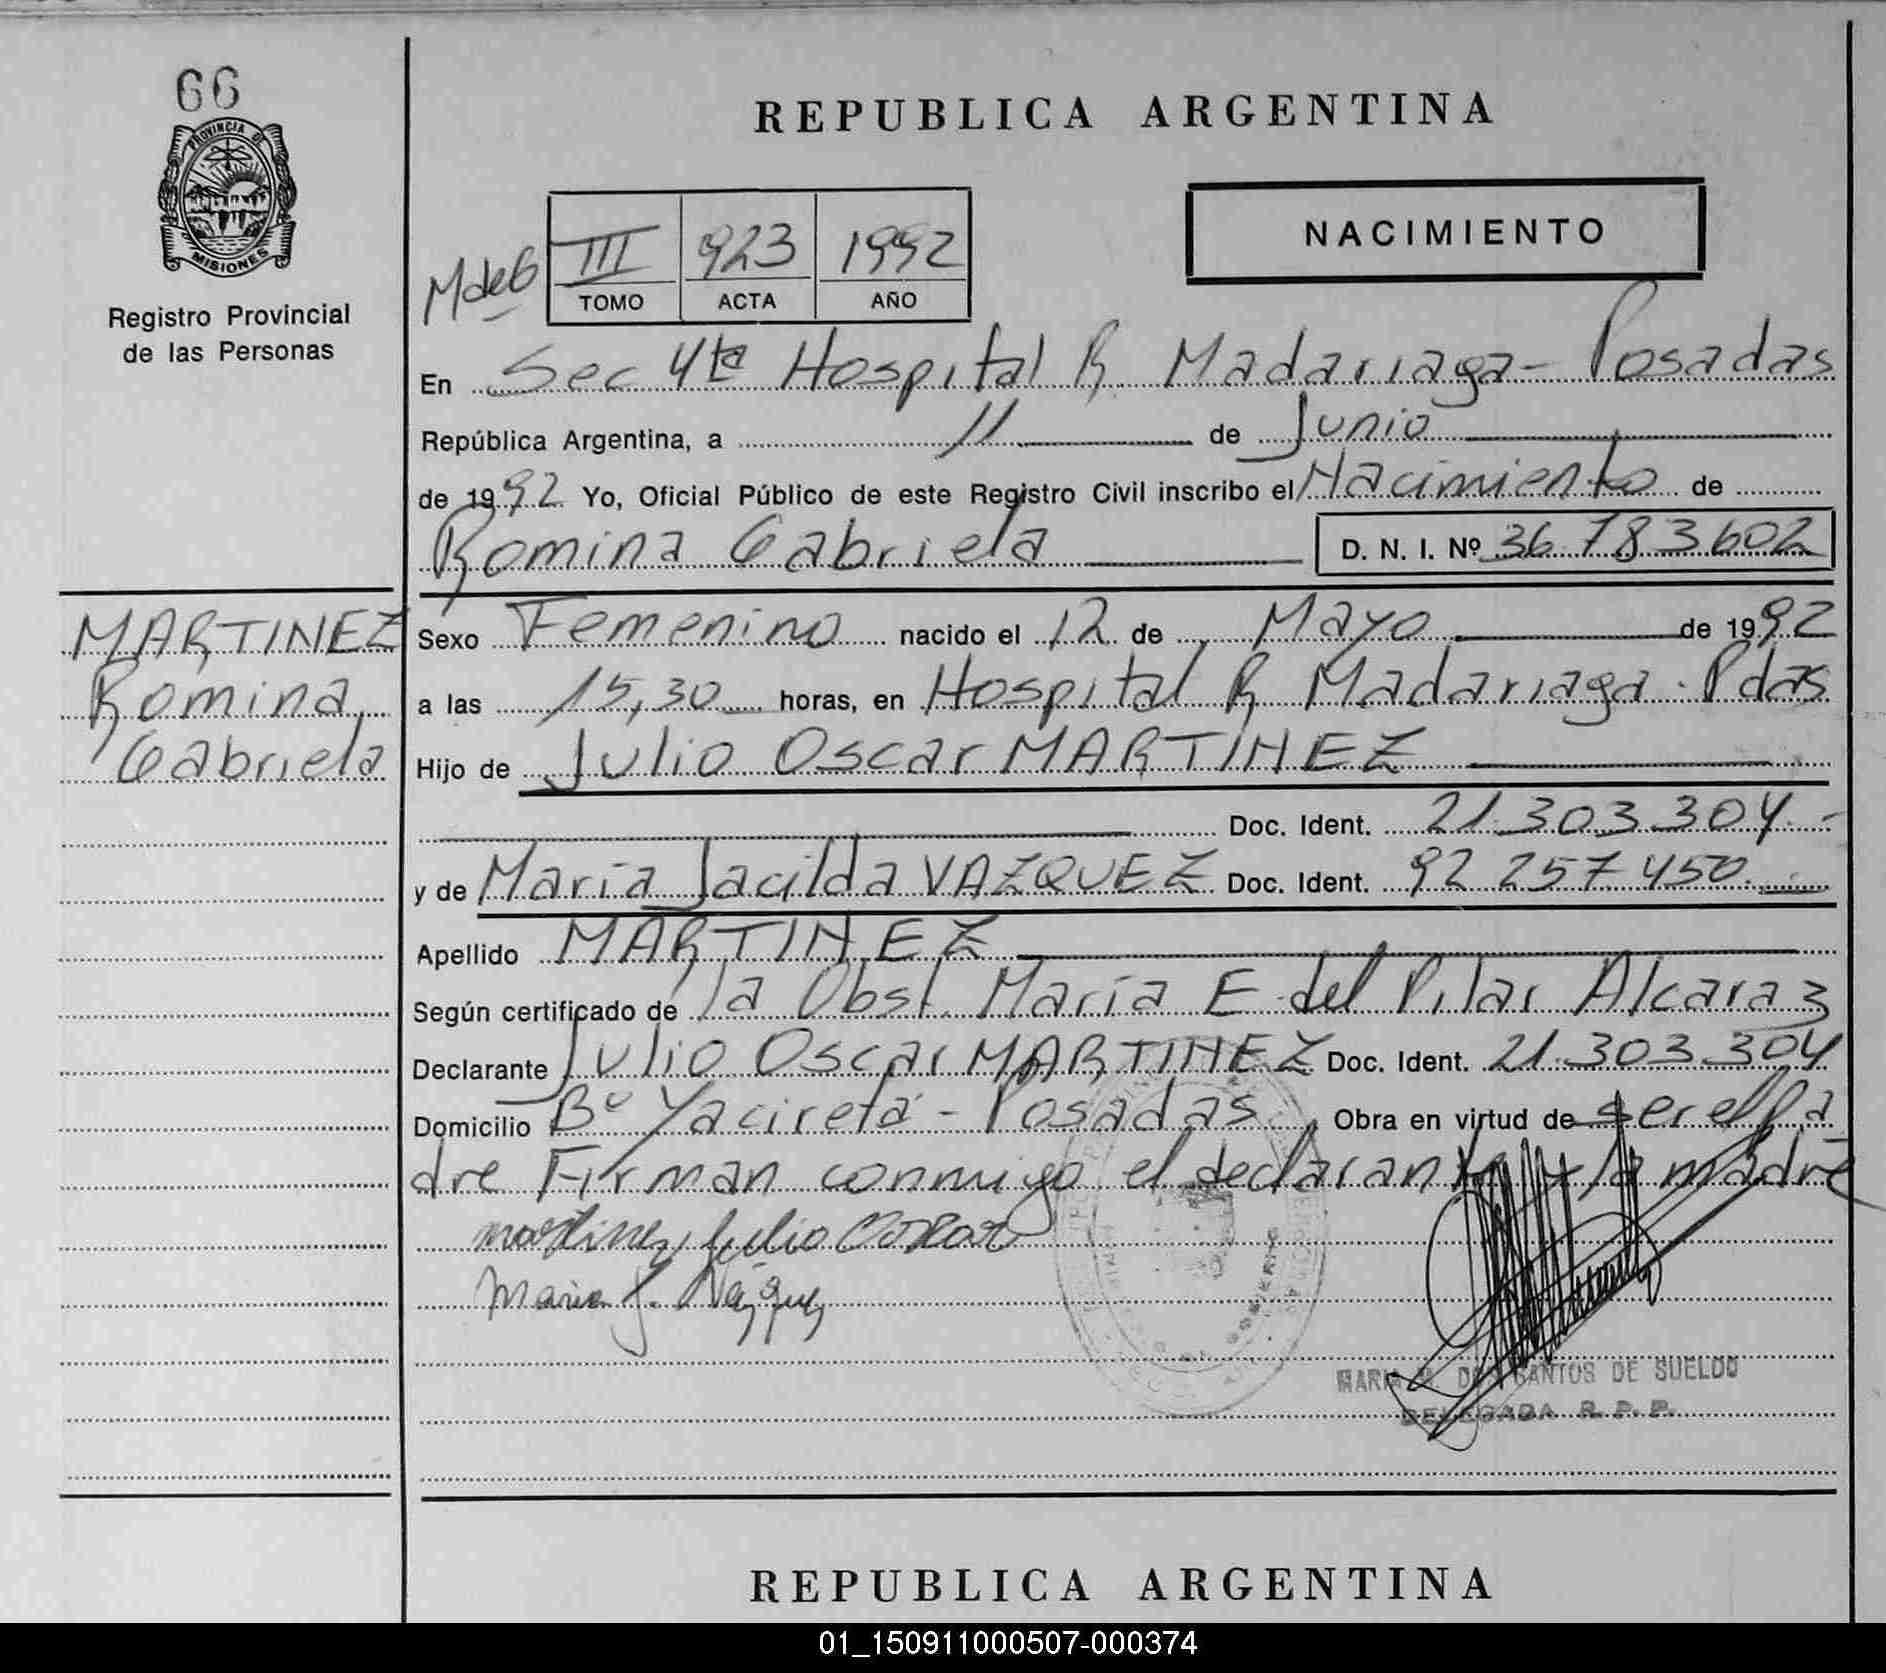 66
PROVINCIA DE
MISIONES
Registro Provincial
de las Personas
REPUBLICA ARGENTINA
NACIMIENTO
III 923 1992
TOMO ACTA AÑO
En Sec 4ta Hospital R Madariaga - Posadas
República Argentina, a 11 de Junio
de 1992 Yo, Oficial Público de este Registro Civil inscribo el Nacimiento de
Romina Gabriela D. N. I. Nº 36.783602
MARTINEZ
Romina
Gabriela
Sexo Femenino nacido el 12 de Mayo de 1992
a las 15,30 horas, en Hospital R Madariaga. Pdas
Hijo de Julio Oscar MARTINEZ
Doc. Ident. 21.303.304.-
y de María Jacilda VAZQUEZ Doc. Ident. 92 257 450.
Apellido MARTINEZ
Según certificado de la Obst. María E. del Pilar Alcaraz
Declarante Julio Oscar MARTINEZ Doc. Ident. 21.303.304
Domicilio Bº Yaciretá - Posadas Obra en virtud de ser el Pa
dre Firman conmigo el declarante y la madre
Martinez Julio Oscar
Maria J. Vázquez
MARIA DOS SANTOS DE SUELDO
DELEGADA R. P. P.
REPUBLICA ARGENTINA
01_150911000507-000374